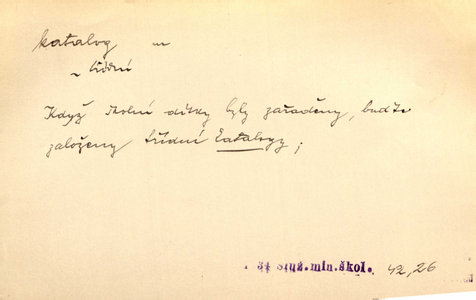 katalog m
~ třídní
Když školní dítky byly zařaděny, buďte
založeny třídní katalogy;
34 Služ.min.škol. 42,26